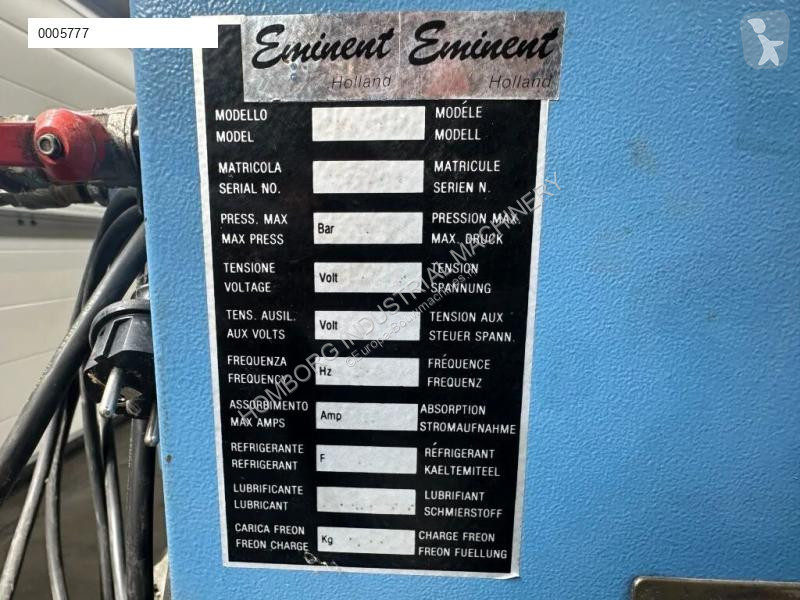 0005777
Eminent Eminent
Holland Holland
MODELLO MODÉLE
MODEL MODELL
MATRICOLA MATRICULE
SERIAL NO. SERIEN N.
PRESS. MAX PRESSION MAX
Bar
MAX PRESS MAX. DRUCK
TENSIONE TENSION
Volt
VOLTAGE SPANNUNG
TENS. AUSIL. TENSION AUX
Volt
AUX VOLTS STEUER SPANN.
FREQUENZA FRÉQUENCE
Hz
FREQUENCY FREQUENZ
ASSORBIMENTO ABSORPTION
Amp
MAX AMPS STROMAUFNAHME
REFRIGERANTE RÉFRIGERANT
F
REFRIGERANT KAELTEMITEEL
LUBRIFICANTE LUBRIFIANT
LUBRICANT SCHMIERSTOFF
CARICA FREON CHARGE FREON
Kg
FREON CHARGE FREON FUELLUNG
HOMBORG INDUSTRIAL MACHINERY